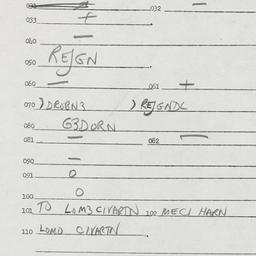 032 —
033 +
040 —
050 REJGN
060 — 061 +
070 ) DRORN3 ) REJGNDL
080 G3DORN
081 — 082 —
090 —
091 0
100 0
101 TO LOM3CIVARTN 100 MECI HARN
110 LOMO CIVARTN